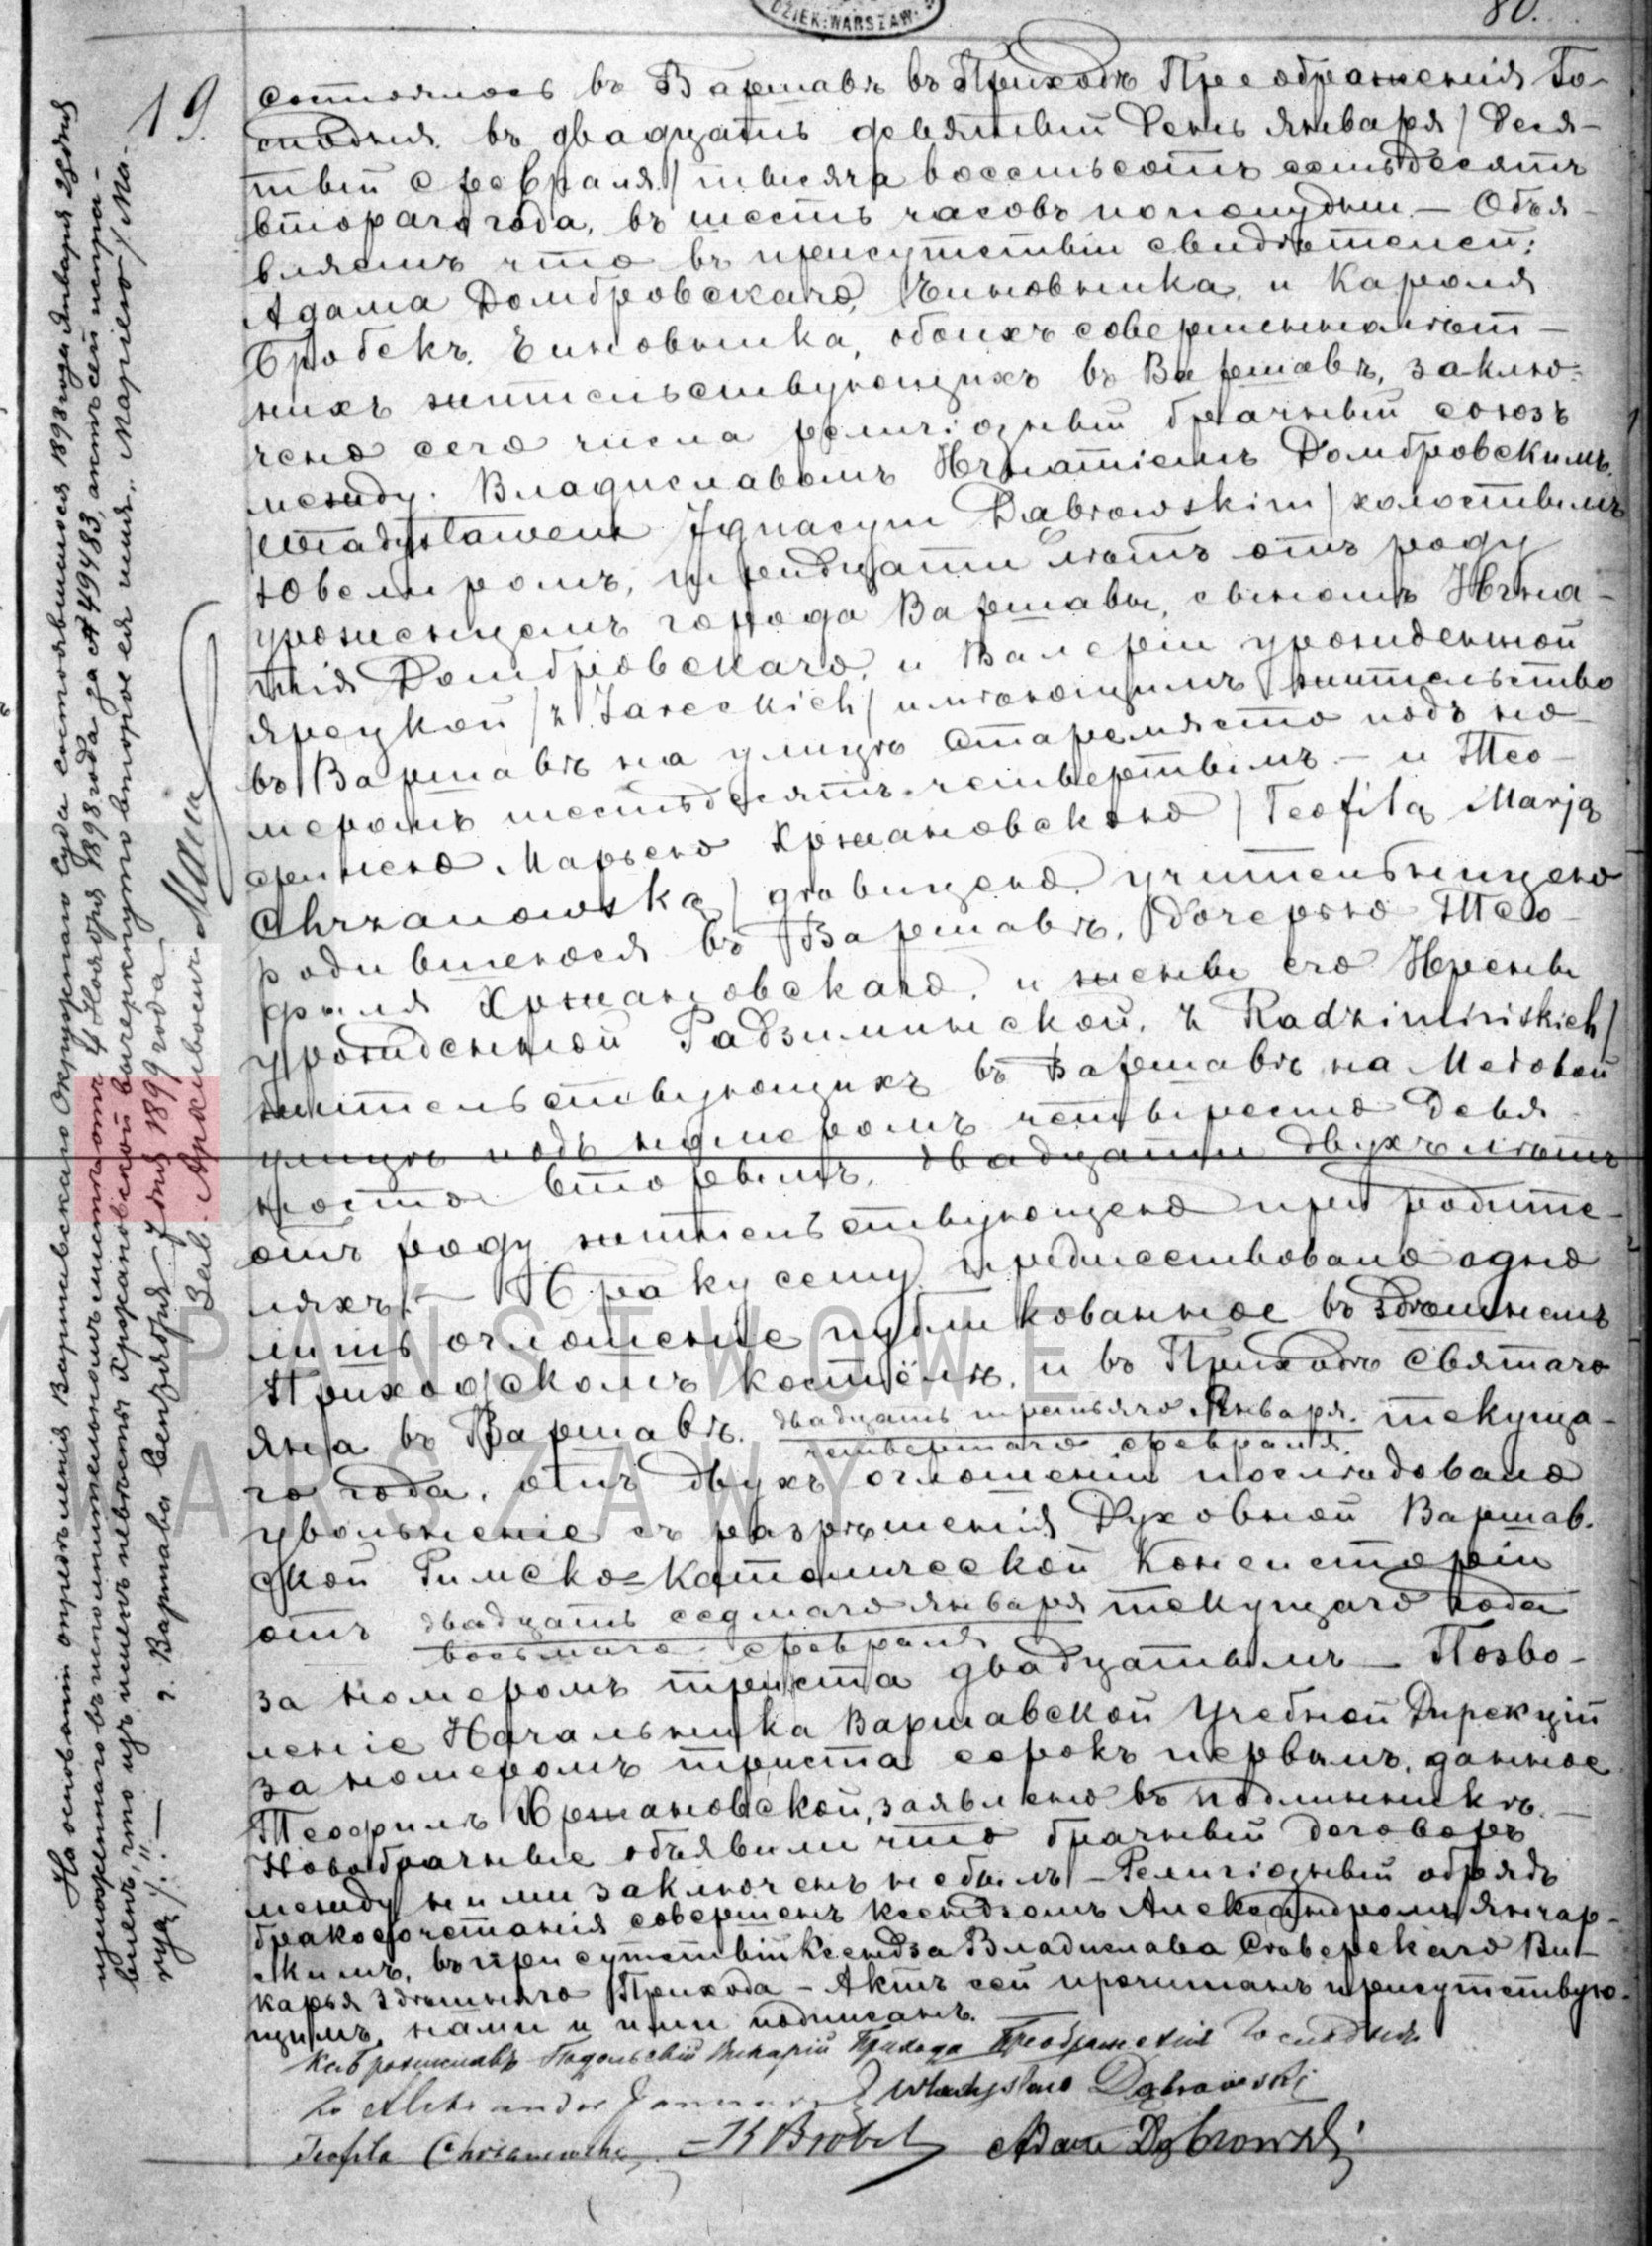 DZIEK: WARSZAW.
80.
19.
Состоялось въ Варшавѣ въ Приходѣ Преображенія Го-
сподня въ двадцать девятый день января / деся-
тый февраля / тысяча восемьсотъ семьдесятъ
втораго года, въ шесть часовъ пополудни. — Объя-
вляемъ что въ присутствіи свидѣтелей:
Адама Домбровскаго, Чиновника, и Кароля
Бробекъ, Чиновника, обоихъ совершеннолѣт-
нихъ жительствующихъ въ Варшавѣ, заклю-
чено сего числа религіозный брачный союзъ
между Владиславомъ Игнатіемъ Домбровскимъ,
/Władysławem Ignacym Dąbrowskim/ холостымъ
Ювелиромъ, тридцати лѣтъ отъ роду
уроженцомъ города Варшавы, сыномъ Игна-
тія Домбровскаго, и Валеріи урожденной
Ярецкой /z Jareckich/ имѣющимъ жительство
въ Варшавѣ на улицѣ Старемясто подъ но-
меромъ шестьдесятъ четвертымъ — и Тео-
филею Марьею Хржановскою /Teofilą Marją
Chrzanowską/ дѣвицею, учительницею
родившеюся въ Варшавѣ, дочерью Тео-
филя Хржановскаго, и жены его Ирены
урожденной Радзиминской, z Radziminskich/
жительствующихъ въ Варшавѣ на Медовой
улицѣ подъ номеромъ четыреста девя-
носто вторымъ, двадцати двухъ лѣтъ
отъ роду жительствующею при родите-
ляхъ. — Браку сему предшествовало одно
лишь оглашеніе публикованное въ здѣшнемъ
Приходскомъ костёлѣ, и въ Приходѣ Святаго
Яна въ Варшавѣ, двадцать третьяго Января. текуща-
четвертаго февраля.
го года, отъ двухъ оглашеніи послѣдовало
увольненіе съ разрѣшенія Духовной Варшав-
ской Римско=Католической Консисторіи
отъ двадцать седмаго января текущаго года
восьмаго февраля
за номеромъ триста двадцатымъ — Позво-
леніе Начальника Варшавской Учебной Дирекціи
за номеромъ триста сорокъ первымъ, данное
Теофилѣ Хржановской, заявлено въ подлинникѣ. —
Новобрачные объявили что брачный договоръ
между ними заключенъ небылъ — Религіозный обрядъ
бракосочетанія совершенъ ксендзомъ Александромъ Янчар-
скимъ, въ присутствіи Ксендза Владислава Сѣверскаго Ви-
карья здѣшняго Прихода — Актъ сей прочитанъ присутствую-
щимъ, нами и ими подписанъ.
Подольскій Викарій Прихода Преображенія Господня
Władysław Dąbrowski
Teofila Chrzanowska K Brobek Adam Dąbrowski
На основаніи опредѣленія Варшавскаго Окружнаго Суда состоявшагося 1898 года Января 29 дня
изложеннаго въ исполнительномъ листѣ отъ 4 Ноября 1898 года за № 49483, актъ сей исправ-
ленъ, что изъ именъ невѣсты Хржановской вычеркнуто второе ея имя „Маріею /Ma-
rya/." — г. Варшава Сентября 7 дня 1899 года
Зав. Архивомъ
PAŃSTWOWE
WARSZAWY